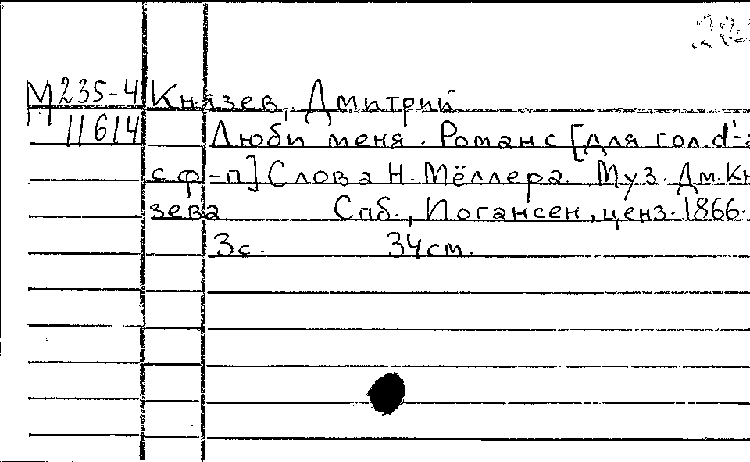 М 235-4 Князев, Дмитрий
11614 Люби меня. Романс [для гол. d'-
с ф-п] Слова Н. Мёллера. Муз. Дм. Кн
зева Спб., Иогансен, ценз. 1866.
3с. 34см.